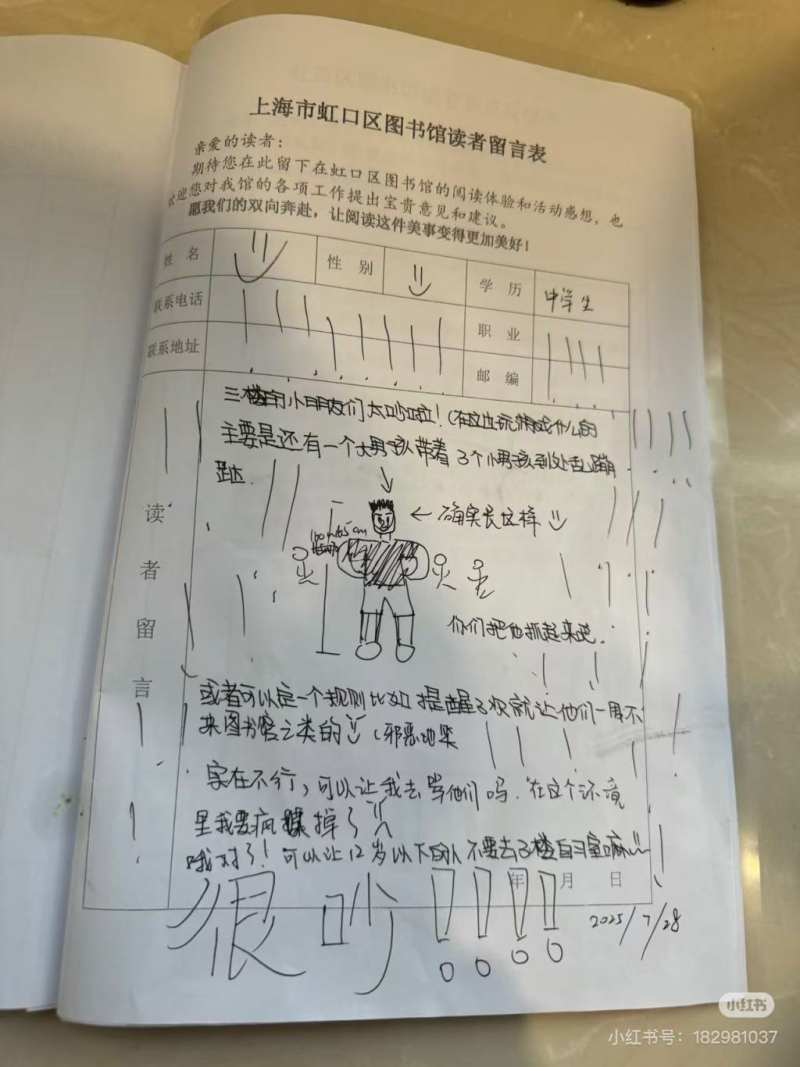 上海市虹口区图书馆读者留言表
亲爱的读者：
期待您在此留下在虹口区图书馆的阅读体验和活动感想，也
欢迎您对我馆的各项工作提出宝贵意见和建议。
愿我们的双向奔赴，让阅读这件美事变得更加美好！
姓 名 性 别 学 历 中学生
联系电话 职 业
联系地址 邮 编
读者留言
三楼的小朋友们太吵啦！(在这边玩游戏什么的
主要是还有一个大男孩带着3个小男孩到处乱蹦
跶.
← 确实长这样
你们把他抓起来吧.
或者可以定一个规则比如提醒3次就让他们一周不
来图书馆之类的 (邪恶地笑
实在不行，可以让我去当他们吗.在这个环境
里我要疯掉了
哦对了！可以让12岁以下的人不要去3楼自习室嘛
很吵！！！！
年 月 日
2025/7/28
小红书
小红书号：182981037